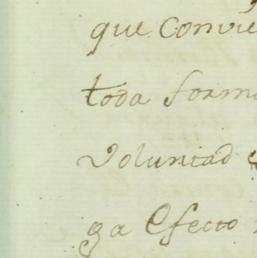 que Convie
toda form
Voluntad
ga Efecto